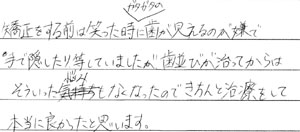 ガタガタの
矯正をする前は笑った時に歯が見えるのが嫌で
手で隠したり等していましたが歯並びが治ってからは
悩み
そういった気持ちもなくなったのできちんと治療をして
本当に良かったと思います。